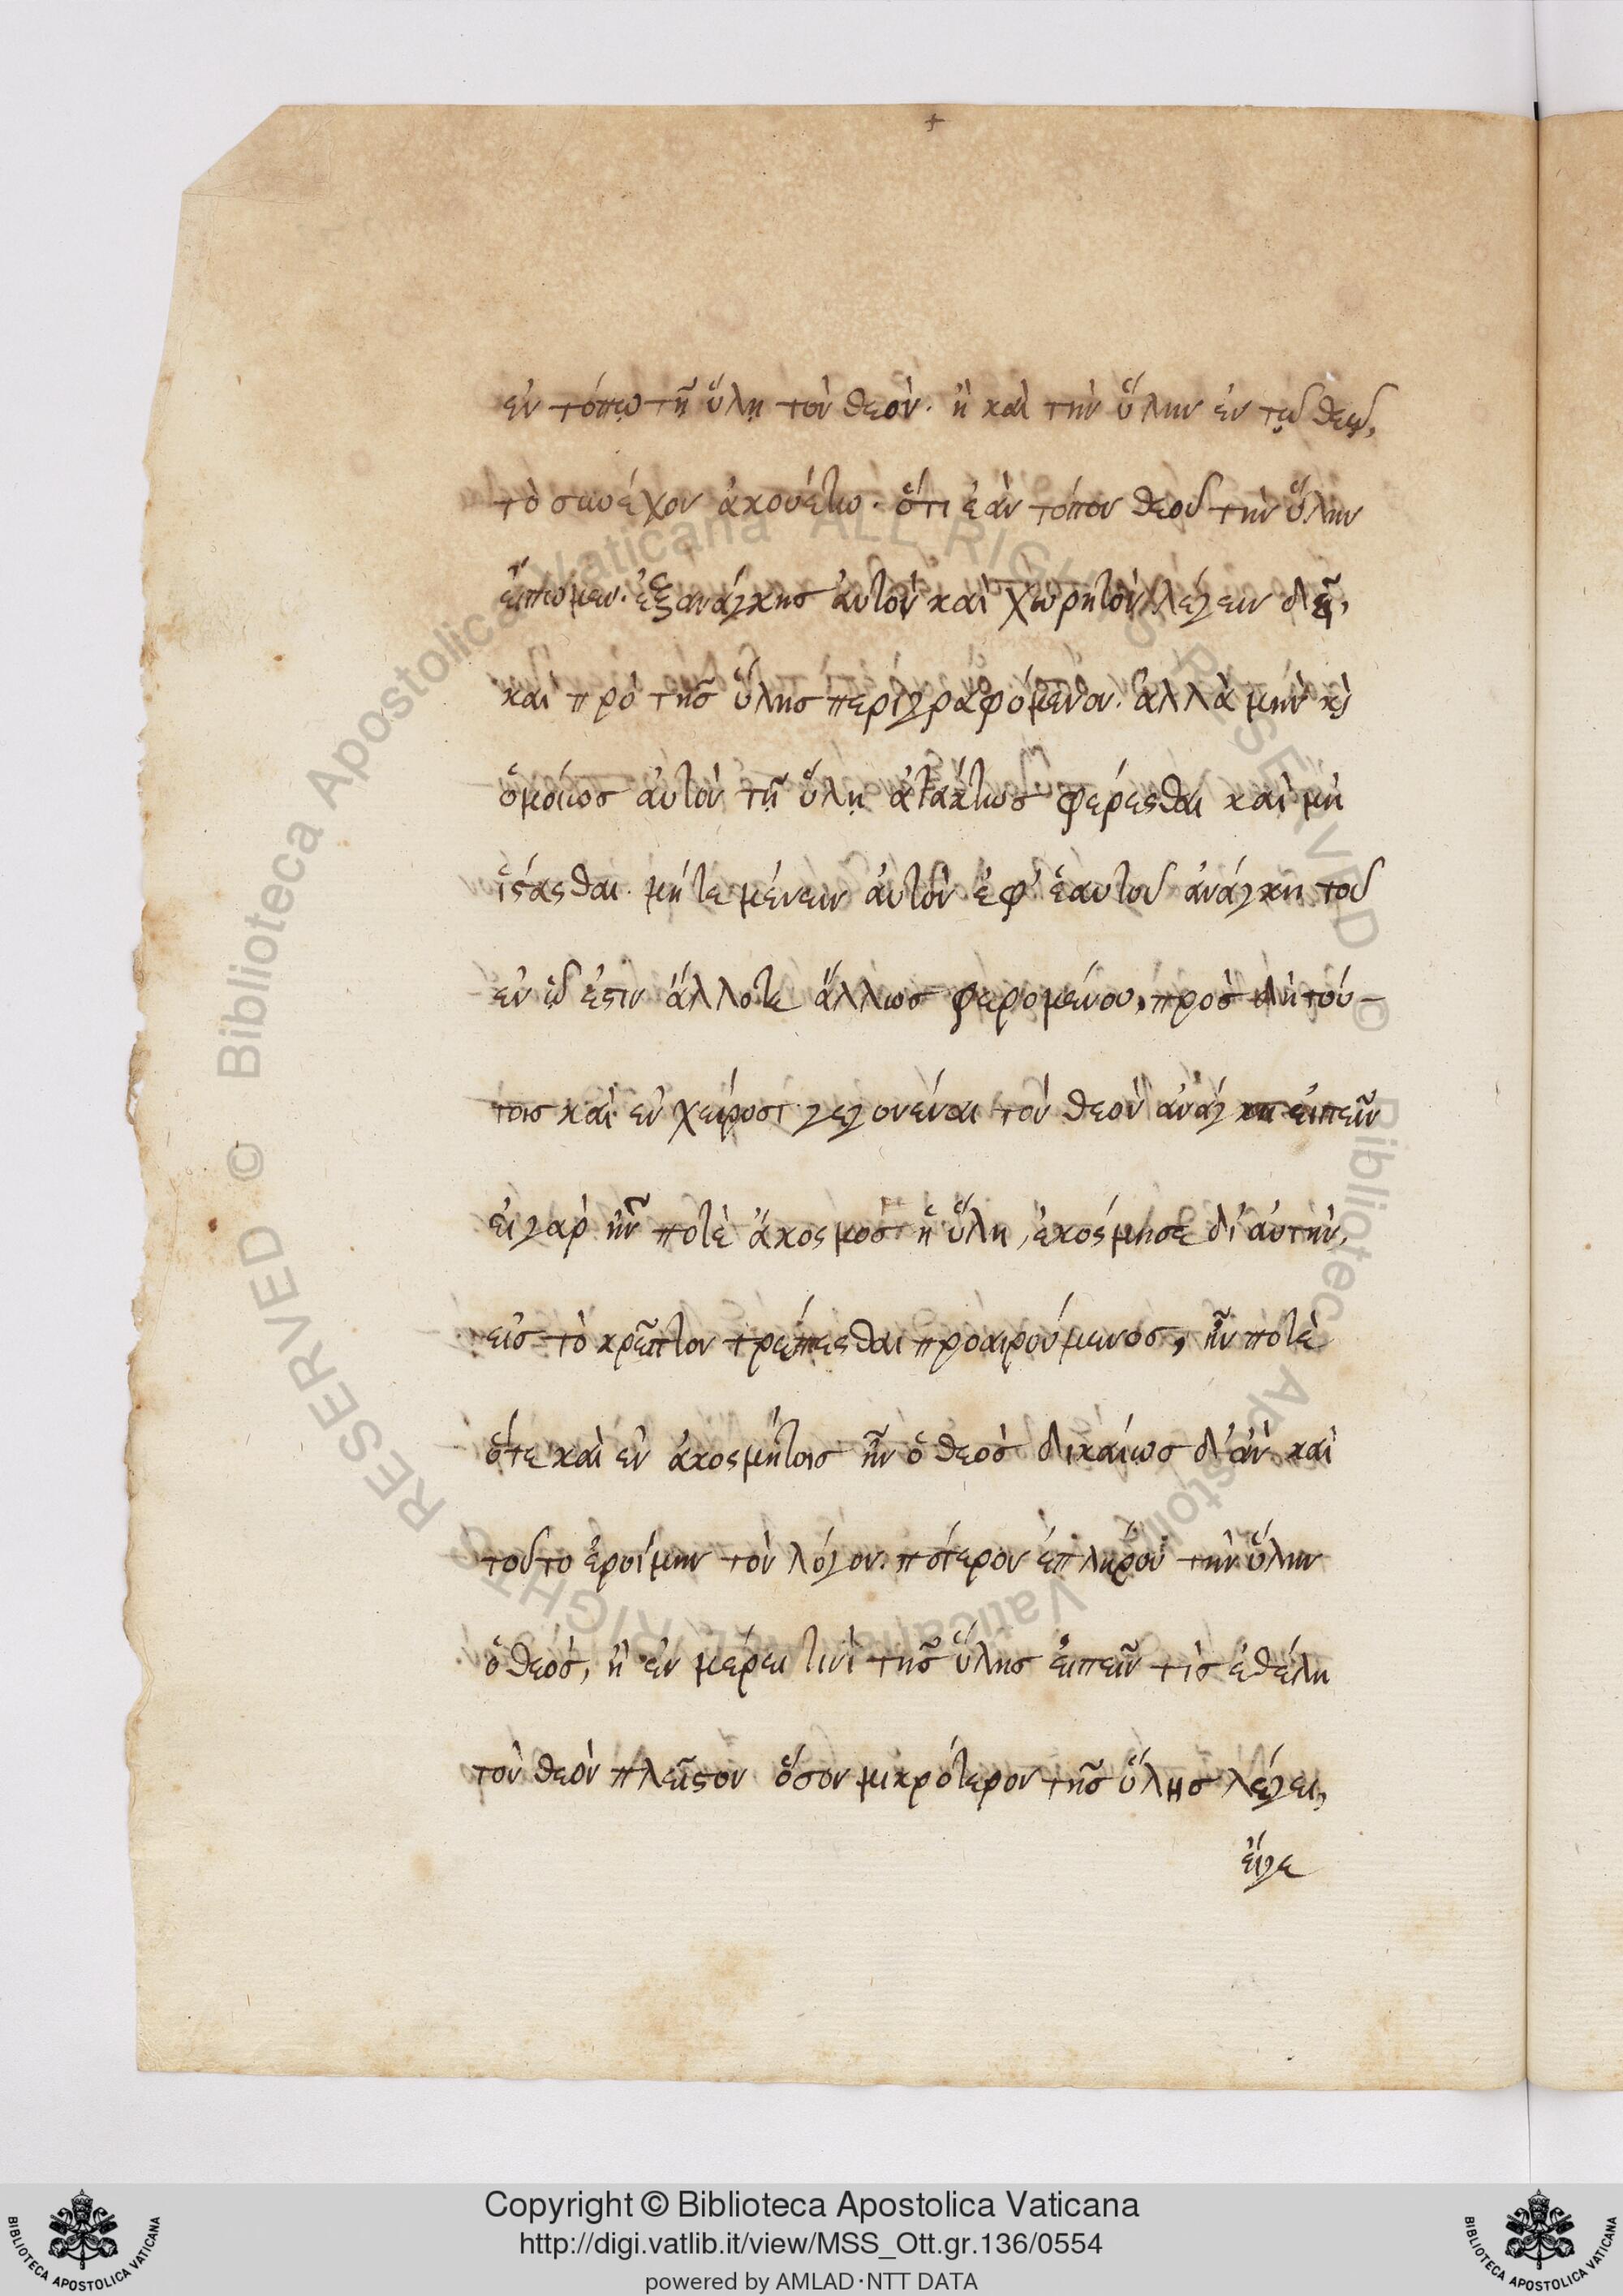 ἐν τόπῳ τῇ ὕλῃ τὸν θεὸν. ἢ καὶ τὴν ὕλην ἐν τῷ θεῷ,
τὸ συνέχον ἀκουέτω. ὅτι ἐὰν τόπον θεοῦ τὴν ὕλην
εἴπωμεν. ἐξανάγκης ἀυτὸν καὶ χωρητὸν λέγειν δεῖ,
καὶ πρὸ τῆς ὕλης περιγραφόμενον. ἀλλὰ μὴν κὶ
ὁμοίως ἀυτὸν τῇ ὕλῃ ἀτάκτως φέρεσθαι καὶ μὴ
ἵστασθαι. μήτε μένειν ἀυτὸν ἐφ' ἑαυτοῦ ἀνάγκη τοῦ
ἐν ᾧ ἐστιν ἄλλοτε ἄλλως φερομένου, πρὸς δὴ τού-
τοις καὶ ἐν χείροσι γεγονέναι τὸν θεὸν ἀνάγκη ἐιπεῖν
ἐι γαρ ἦν ποτὲ ἄκοσμος ἡ ὕλη, ἐκόσμησε δ' ἀυτὴν,
εἰς τὸ κρεῖττον τρέπεσθαι προαιρούμενος, ἦν ποτὲ
ὅτε καὶ ἐν ἀκοσμήτοις ἦν ὁ θεὸς δικαίως δ' ἀν καὶ
τοῦτο ἐροίμην τὸν λόγον. πότερον ἐπλήρου τὴν ὕλην
ὁ θεός, ἢ ἐν μέρει τινὶ τῆς ὕλης εἰπεῖν τὶς ἐθέλη
τὸν θεὸν πλεῖστον ὅσον μικρότερον τῆς ὕλης λέγει,
εἴγε
Copyright © Biblioteca Apostolica Vaticana
http://digi.vatlib.it/view/MSS_Ott.gr.136/0554
powered by AMLAD·NTT DATA
© Biblioteca Apostolica Vaticana ALL RIGHTS RESERVED
© Biblioteca Apostolica Vaticana ALL RIGHTS RESERVED
BIBLIOTECA APOSTOLICA VATICANA
BIBLIOTECA APOSTOLICA VATICANA